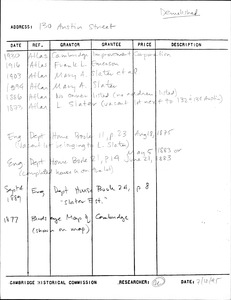 Demolished
ADDRESS: 130 Austin Street
DATE REF. GRANTOR GRANTEE PRICE DESCRIPTION
1930 Atlas Cambridge Improvement Corporation
1916 Atlas Frank L. Emerson
1903 Atlas Mary A. Slater et al
1894 Atlas Mary A. Slater
1886 Atlas No owner listed
1873 Atlas L. Slater (vacant lot next to
Eng. Dept House Book 11, p. 23 Aug 18, 1885
(vacant lot belonging to L. Slater)
Eng. Dept. House Book 21, p. 19 May 5, 1883 or
June 23, 1883
(completed house on lot)
Sept 4 Eng Dept House Book 24, p. 8
1889 "Slater Est."
1877 Map of Cambridge
(shown on map)
CAMBRIDGE HISTORICAL COMMISSION RESEARCHER: DATE: